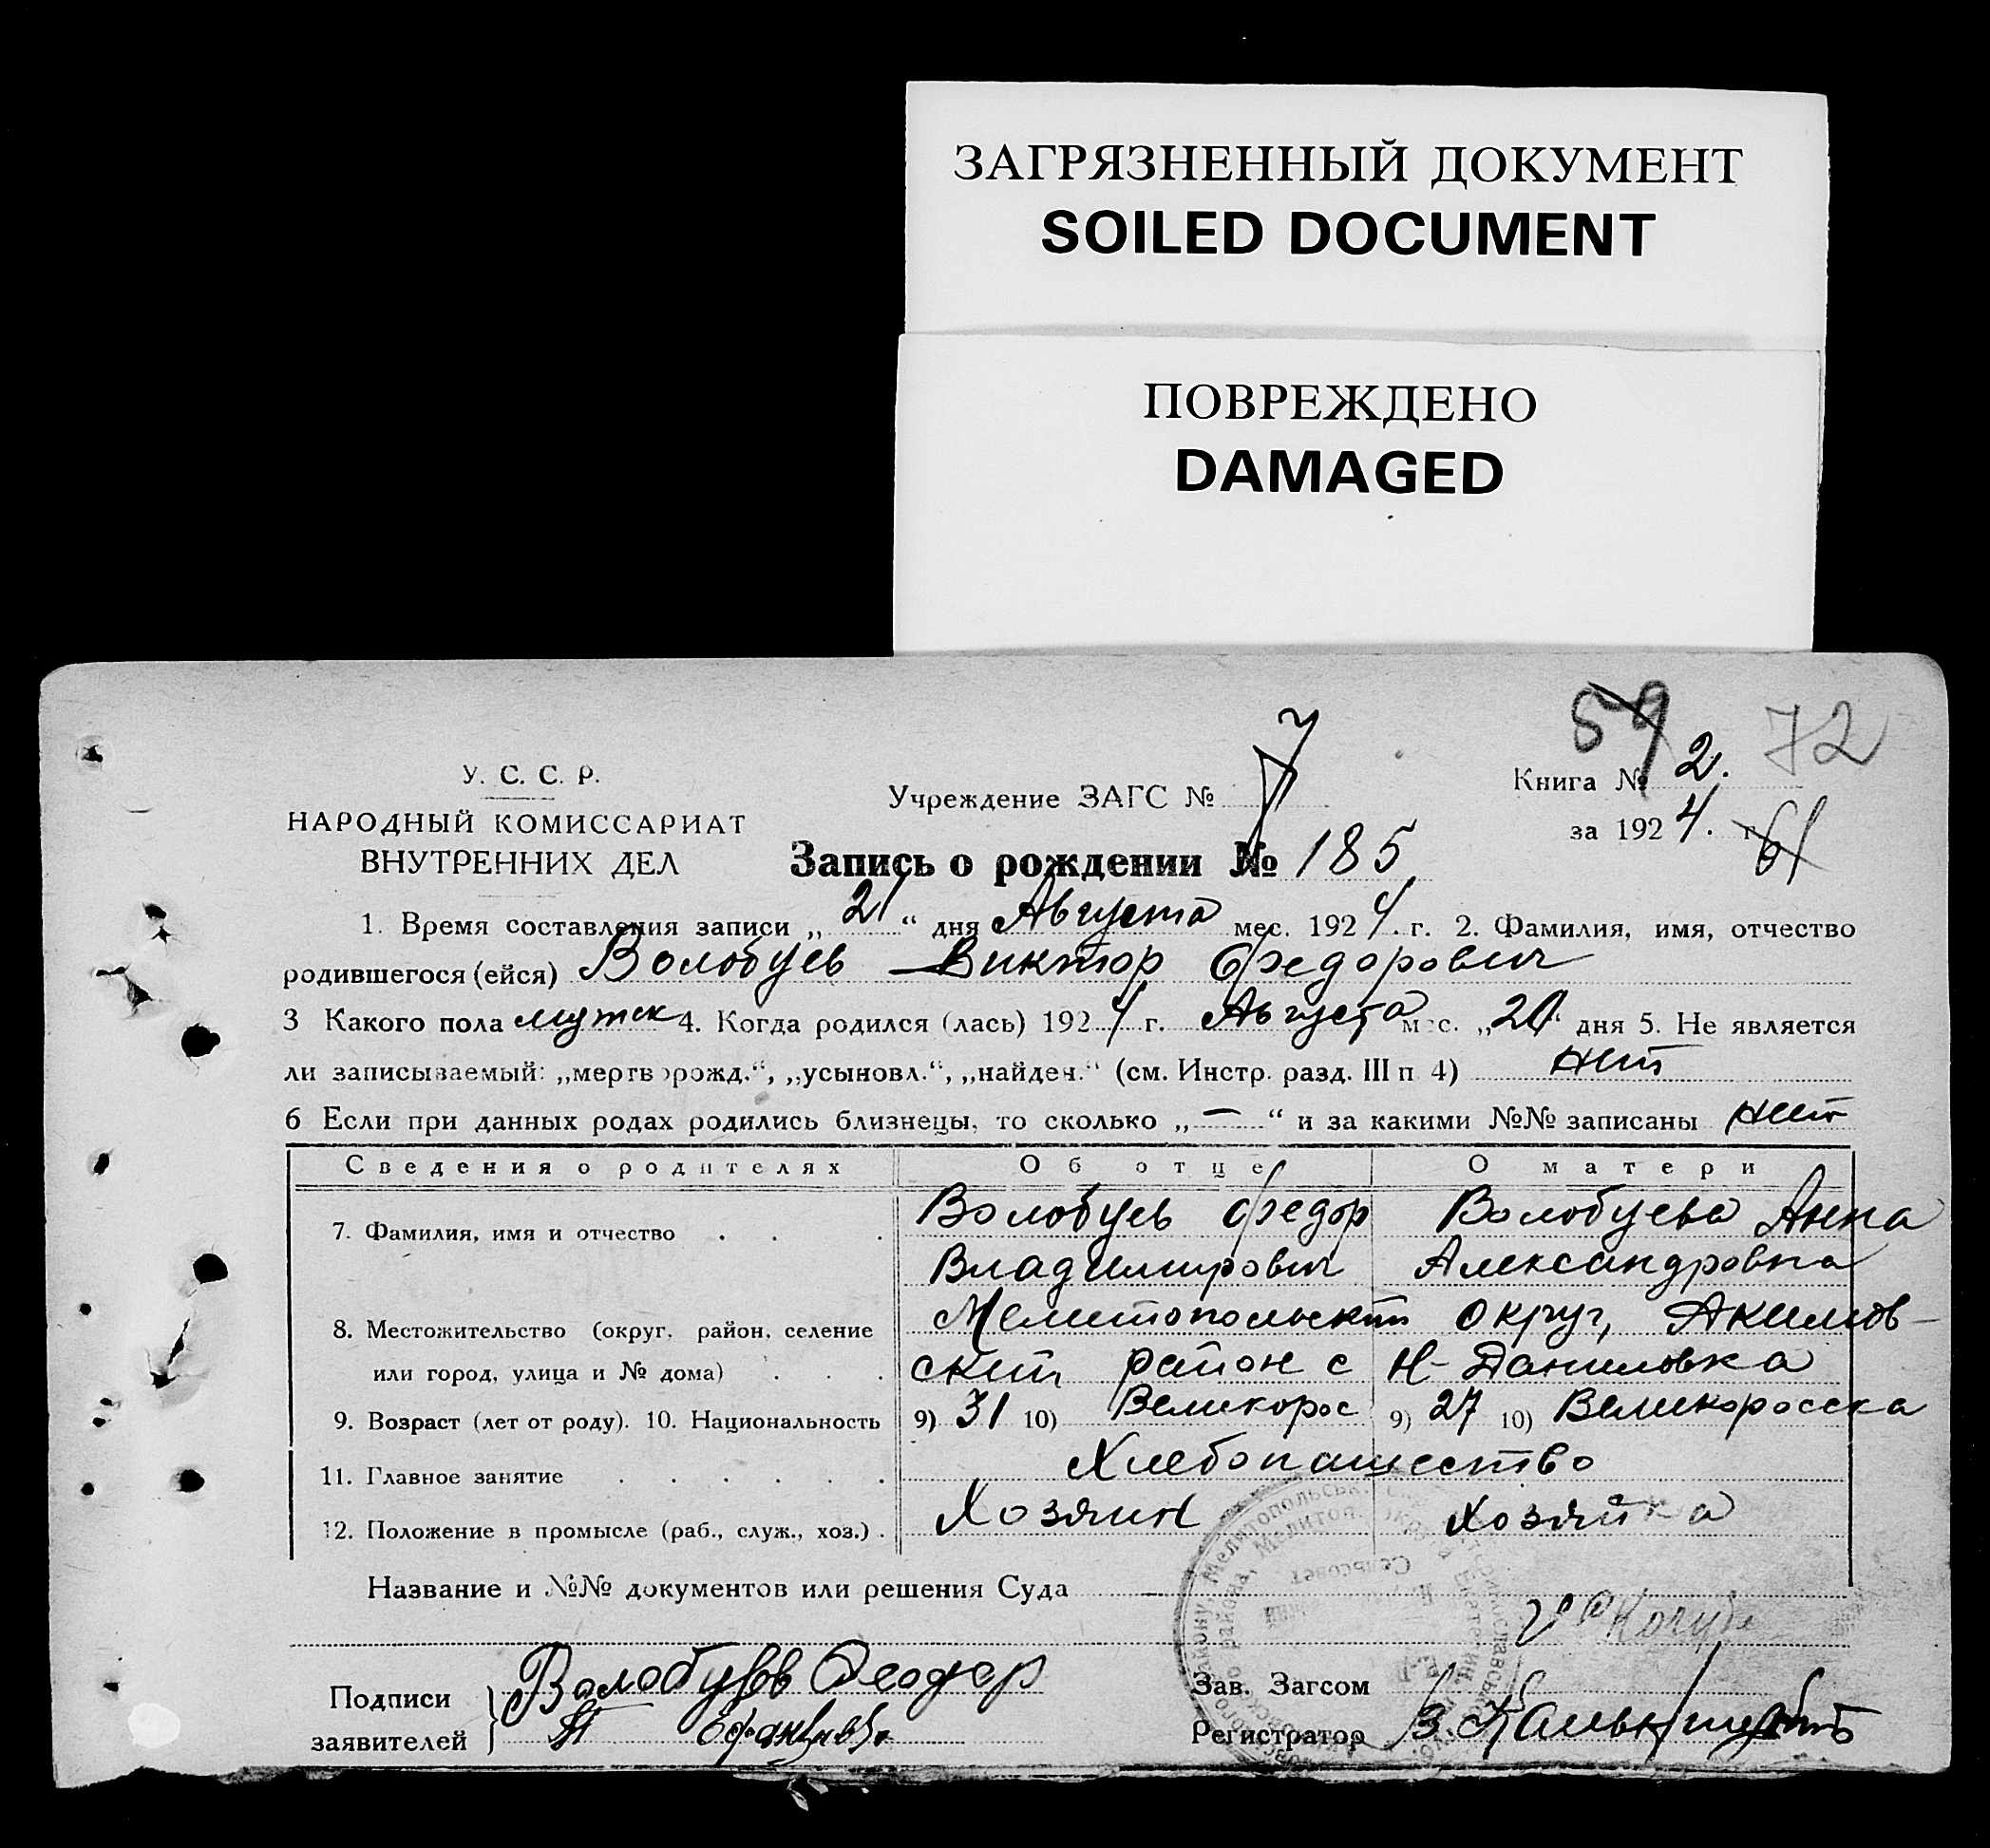 ЗАГРЯЗНЕННЫЙ ДОКУМЕНТ
SOILED DOCUMENT
ПОВРЕЖДЕНО
DAMAGED
59 72
У. С. С. Р.
НАРОДНЫЙ КОМИССАРИАТ
ВНУТРЕННИХ ДЕЛ
Учреждение ЗАГС №
Книга № 2.
за 1924. г. 61
Запись о рождении № 185
1. Время составления записи „21“ дня Августа мес. 1924. г. 2. Фамилия, имя, отчество
родившегося (ейся) Волобуев Виктор Федорович
3 Какого пола мужск 4. Когда родился (лась) 1924 г. Августа мес. „20“ дня 5. Не является
ли записываемый: „мертворожд.“, „усыновл.“, „найден.“ (см. Инстр. разд. III п 4) нет
6 Если при данных родах родились близнецы, то сколько „—“ и за какими №№ записаны нет
Сведения о родителях Об отце О матери
7. Фамилия, имя и отчество Волобуев Федор Волобуева Анна
Владимирович Александровна
8. Местожительство (округ, район, селение Мелитопольский округ, Акимов-
или город, улица и № дома) ский район с Н-Даниловка
9. Возраст (лет от роду). 10. Национальность 9) 31 10) Великорос 9) 27 10) Великоросска
11. Главное занятие Хлебопашество
12. Положение в промысле (раб., служ., хоз.) Хозяин Хозяйка
Название и №№ документов или решения Суда —
Подписи Волобуев Феодор
заявителей
Зав. Загсом
Регистратор